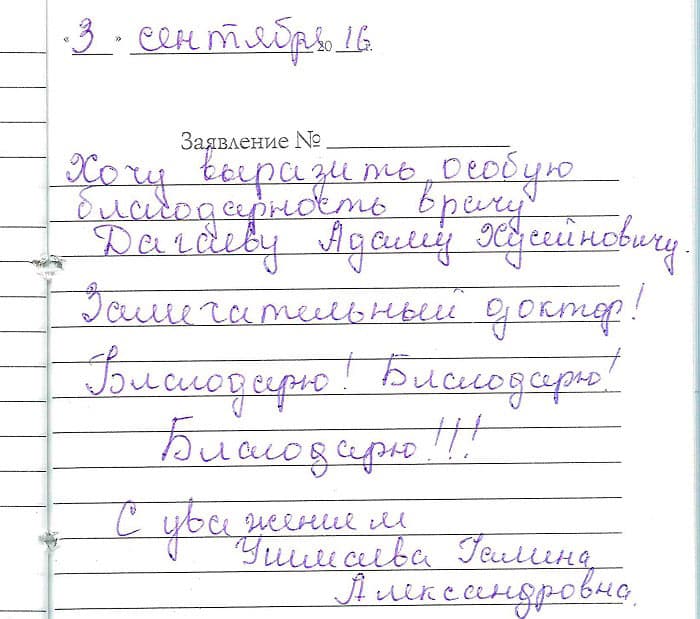 «3» сентября 2016г.
Заявление №
Хочу выразить особую
благодарность врачу
Дагаеву Адаму Хусейновичу.
Замечательный доктор!
Благодарю! Благодарю!
Благодарю!!!
С уважением
Ушмаева Галина
Александровна.